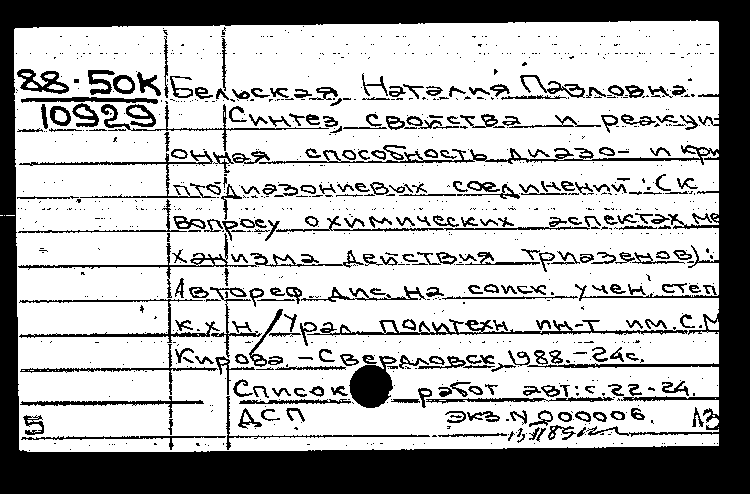 88-50К Бельская, Наталия Павловна
10929 Синтез, свойства и реакци-
онная способность диазо- и кри
птодиазониевых соединений: (К
вопросу о химических аспектах ме
ханизма действия триазенов):
Автореф. дис. на соиск. учен. степ
к.х.н. / Урал. политехн. ин-т им. С.М
Кирова. - Свердловск, 1988. - 24с.
Список работ авт.: с. 22-24.
5 ДСП Экз. N 000006. ЛЗ